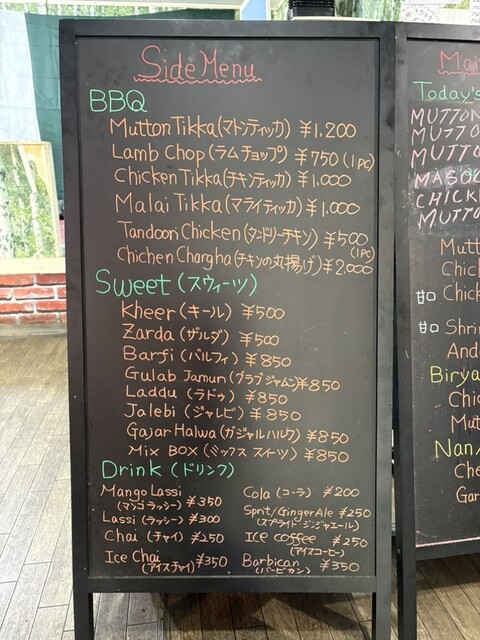 Side Menu
BBQ
Mutton Tikka (マトンティッカ) ¥1.200
Lamb Chop (ラムチョップ) ¥750 (1PC)
Chicken Tikka (チキンティッカ) ¥1,000
Malai Tikka (マライティッカ) ¥1,000
Tandoori Chicken (タンドリーチキン) ¥500 (1PC)
Chichen Chargha (チキンの丸揚げ) ¥2,000
Sweet (スウィーツ)
Kheer (キール) ¥500
Zarda (ザルダ) ¥500
Barfi (バルフィ) ¥850
Gulab Jamun (グラブジャムン) ¥850
Laddu (ラドゥ) ¥850
Jalebi (ジャレビ) ¥850
Gajar Halwa (ガジャルハルワ) ¥850
Mix BOX (ミックス スイーツ) ¥850
Drink (ドリンク)
Mango Lassi (マンゴラッシー) ¥350
Lassi (ラッシー) ¥300
Chai (チャイ) ¥250
Ice Chai (アイスチャイ) ¥350
Cola (コーラ) ¥200
Sprit/Ginger Ale ¥250
(スプライト ジンジャエール)
ICE coffee ¥250
(アイスコーヒー)
Barbican ¥350
(バービカン)
Mai
Today's
MUTTON
MUTTO
MUTTO
MASA
CHICK
MUTTO
Mutt
Chic
甘口 Chick
甘口 Shri
And
Birya
Chic
Mut
Nan
Che
Gar